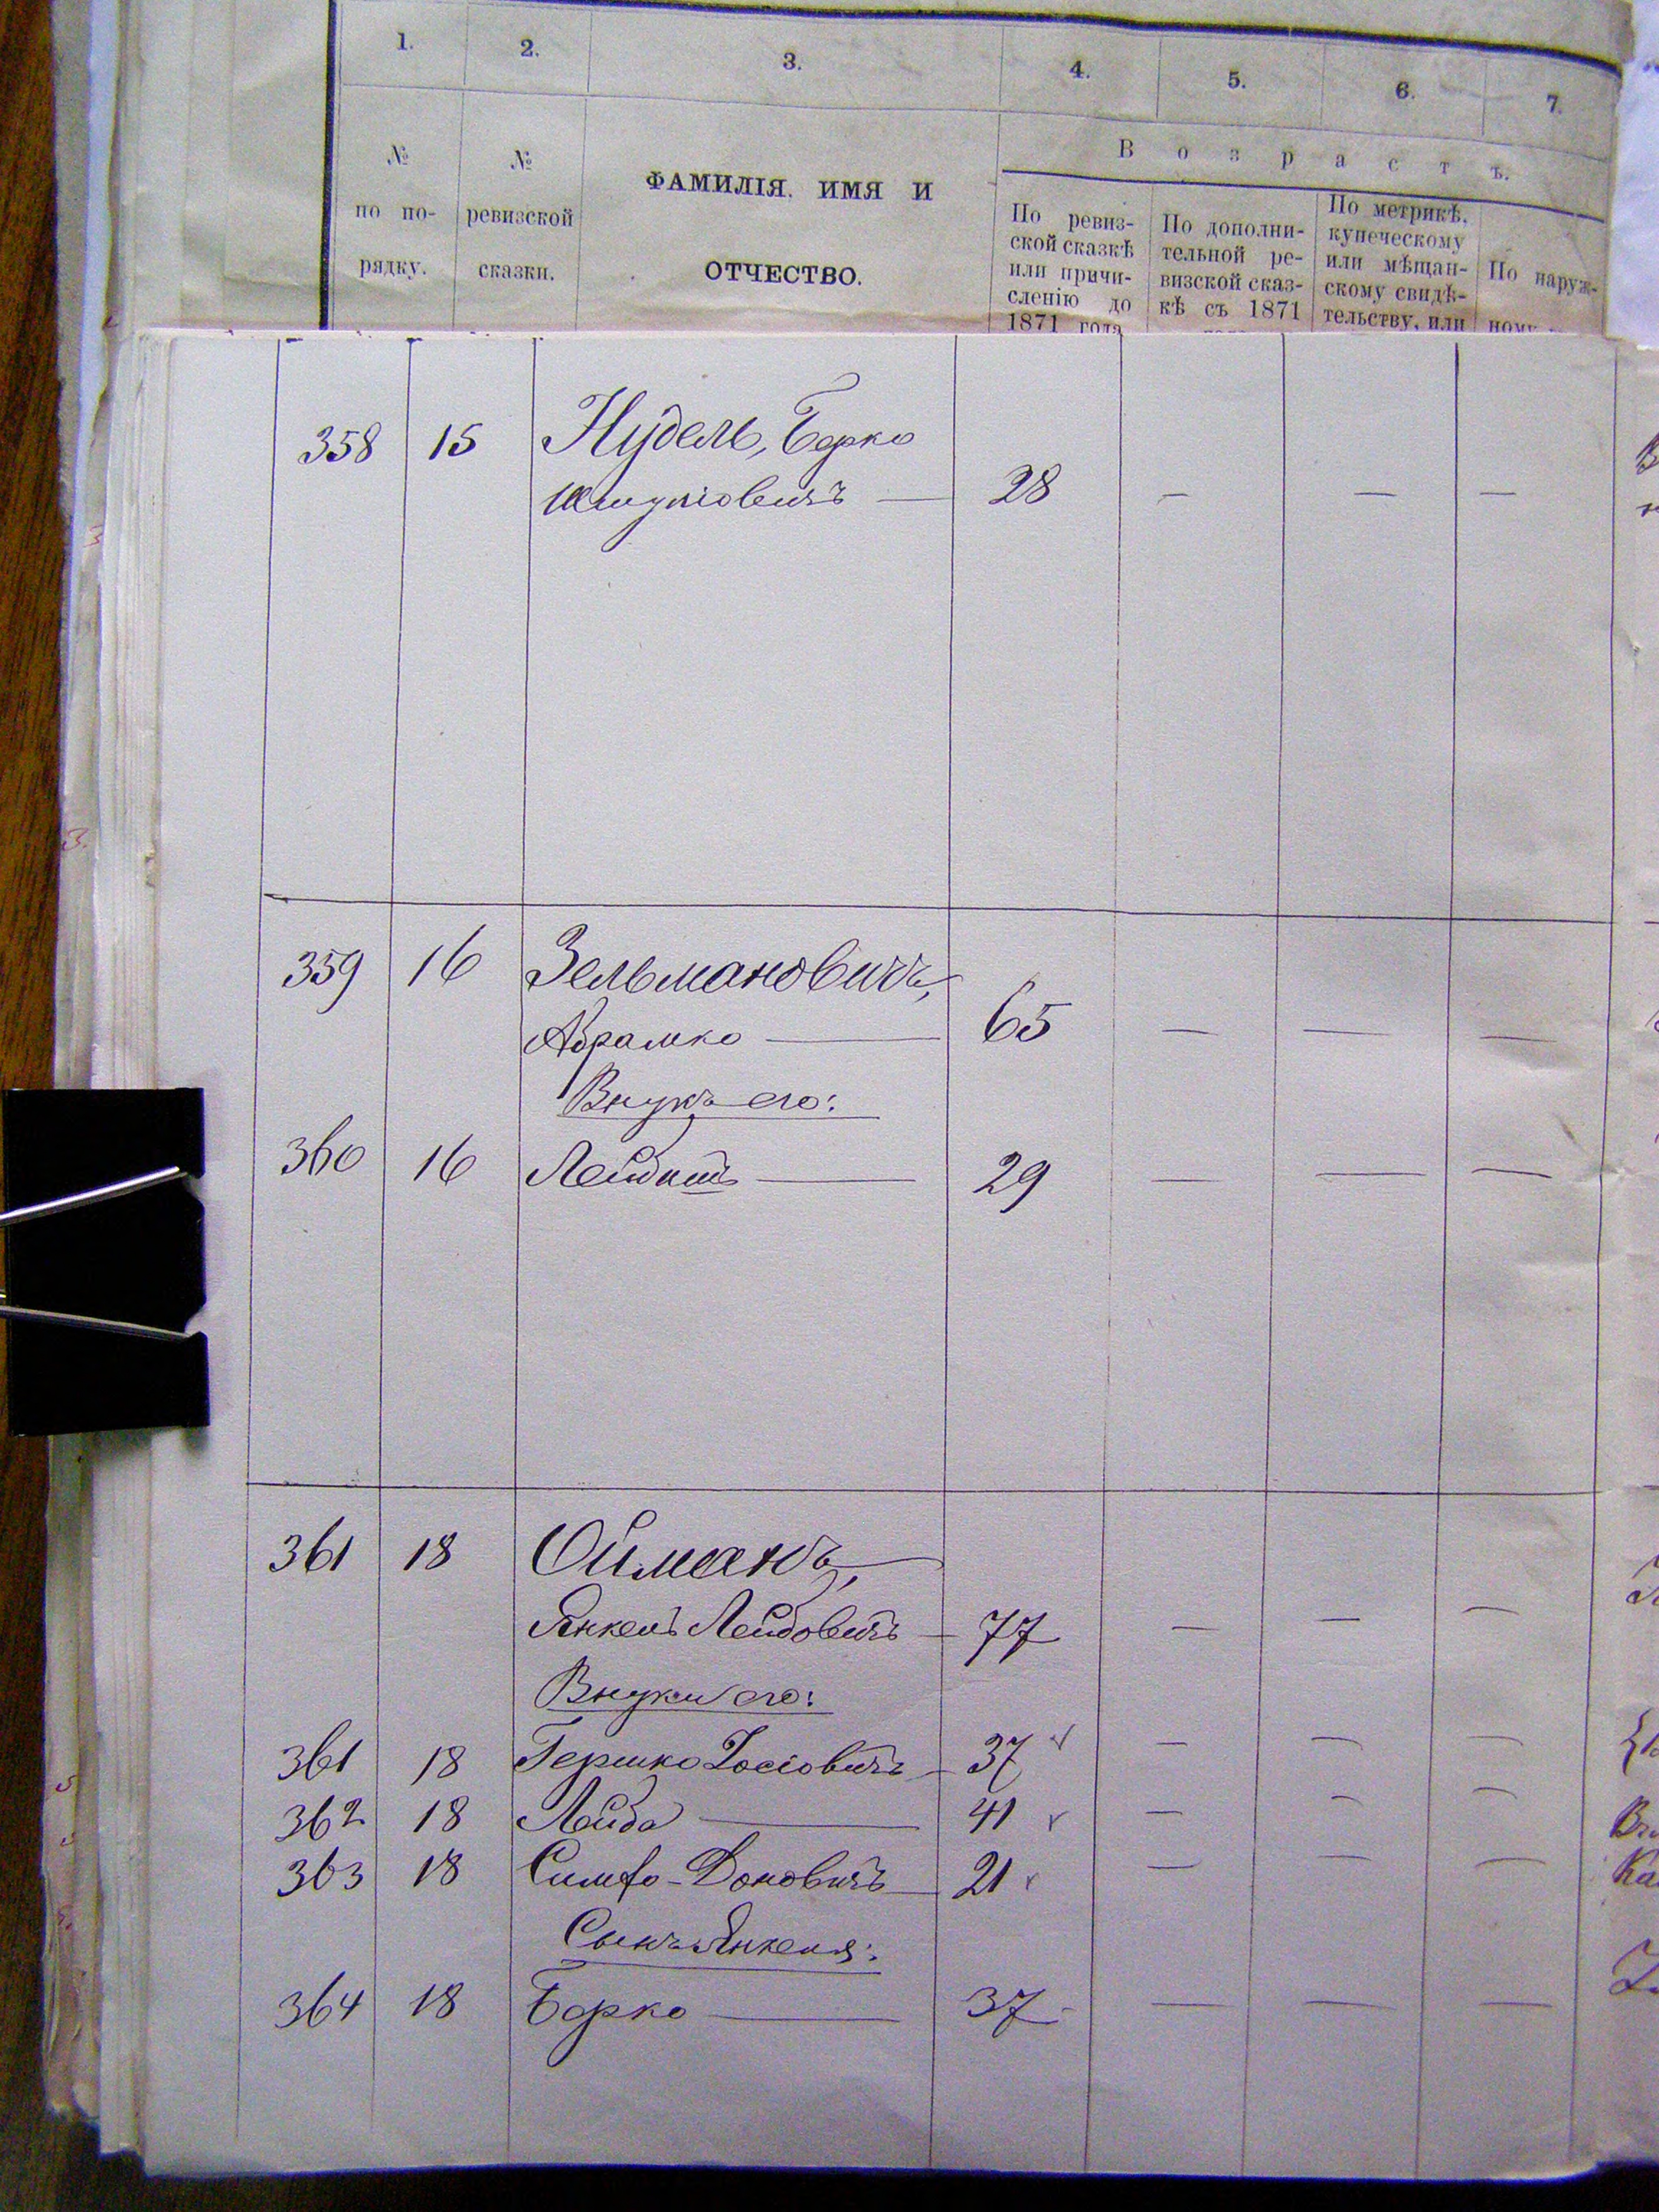 1. 2. 3. 4. 5. 6. 7.
В о з р а с т ъ.
№ по по- рядку.
№ ревизской сказки.
ФАМИЛІЯ. ИМЯ И
ОТЧЕСТВО.
По ревиз-
ской сказкѣ
или причи-
сленію до
1871 года
По дополни-
тельной ре-
визской сказ-
кѣ съ 1871
По метрикѣ,
купеческому
или мѣщан-
скому свидѣ-
тельству, или
По наруж-
ному
358 15 Нудель, Берко
28 — — —
359 16 Зельмановичъ,
Абрамко — 65 — — —
Внукъ его:
360 16 — 29 — — —
361 18 Ойманъ,
Янкель Лейбовичъ — 77 — — —
Внуки его:
361 18 Гершко Іосіовичъ — 37 — — —
362 18 Лейба — 41 — — —
363 18 21 — — —
Сынъ Янкеля:
364 18 Берко — 37 — — —